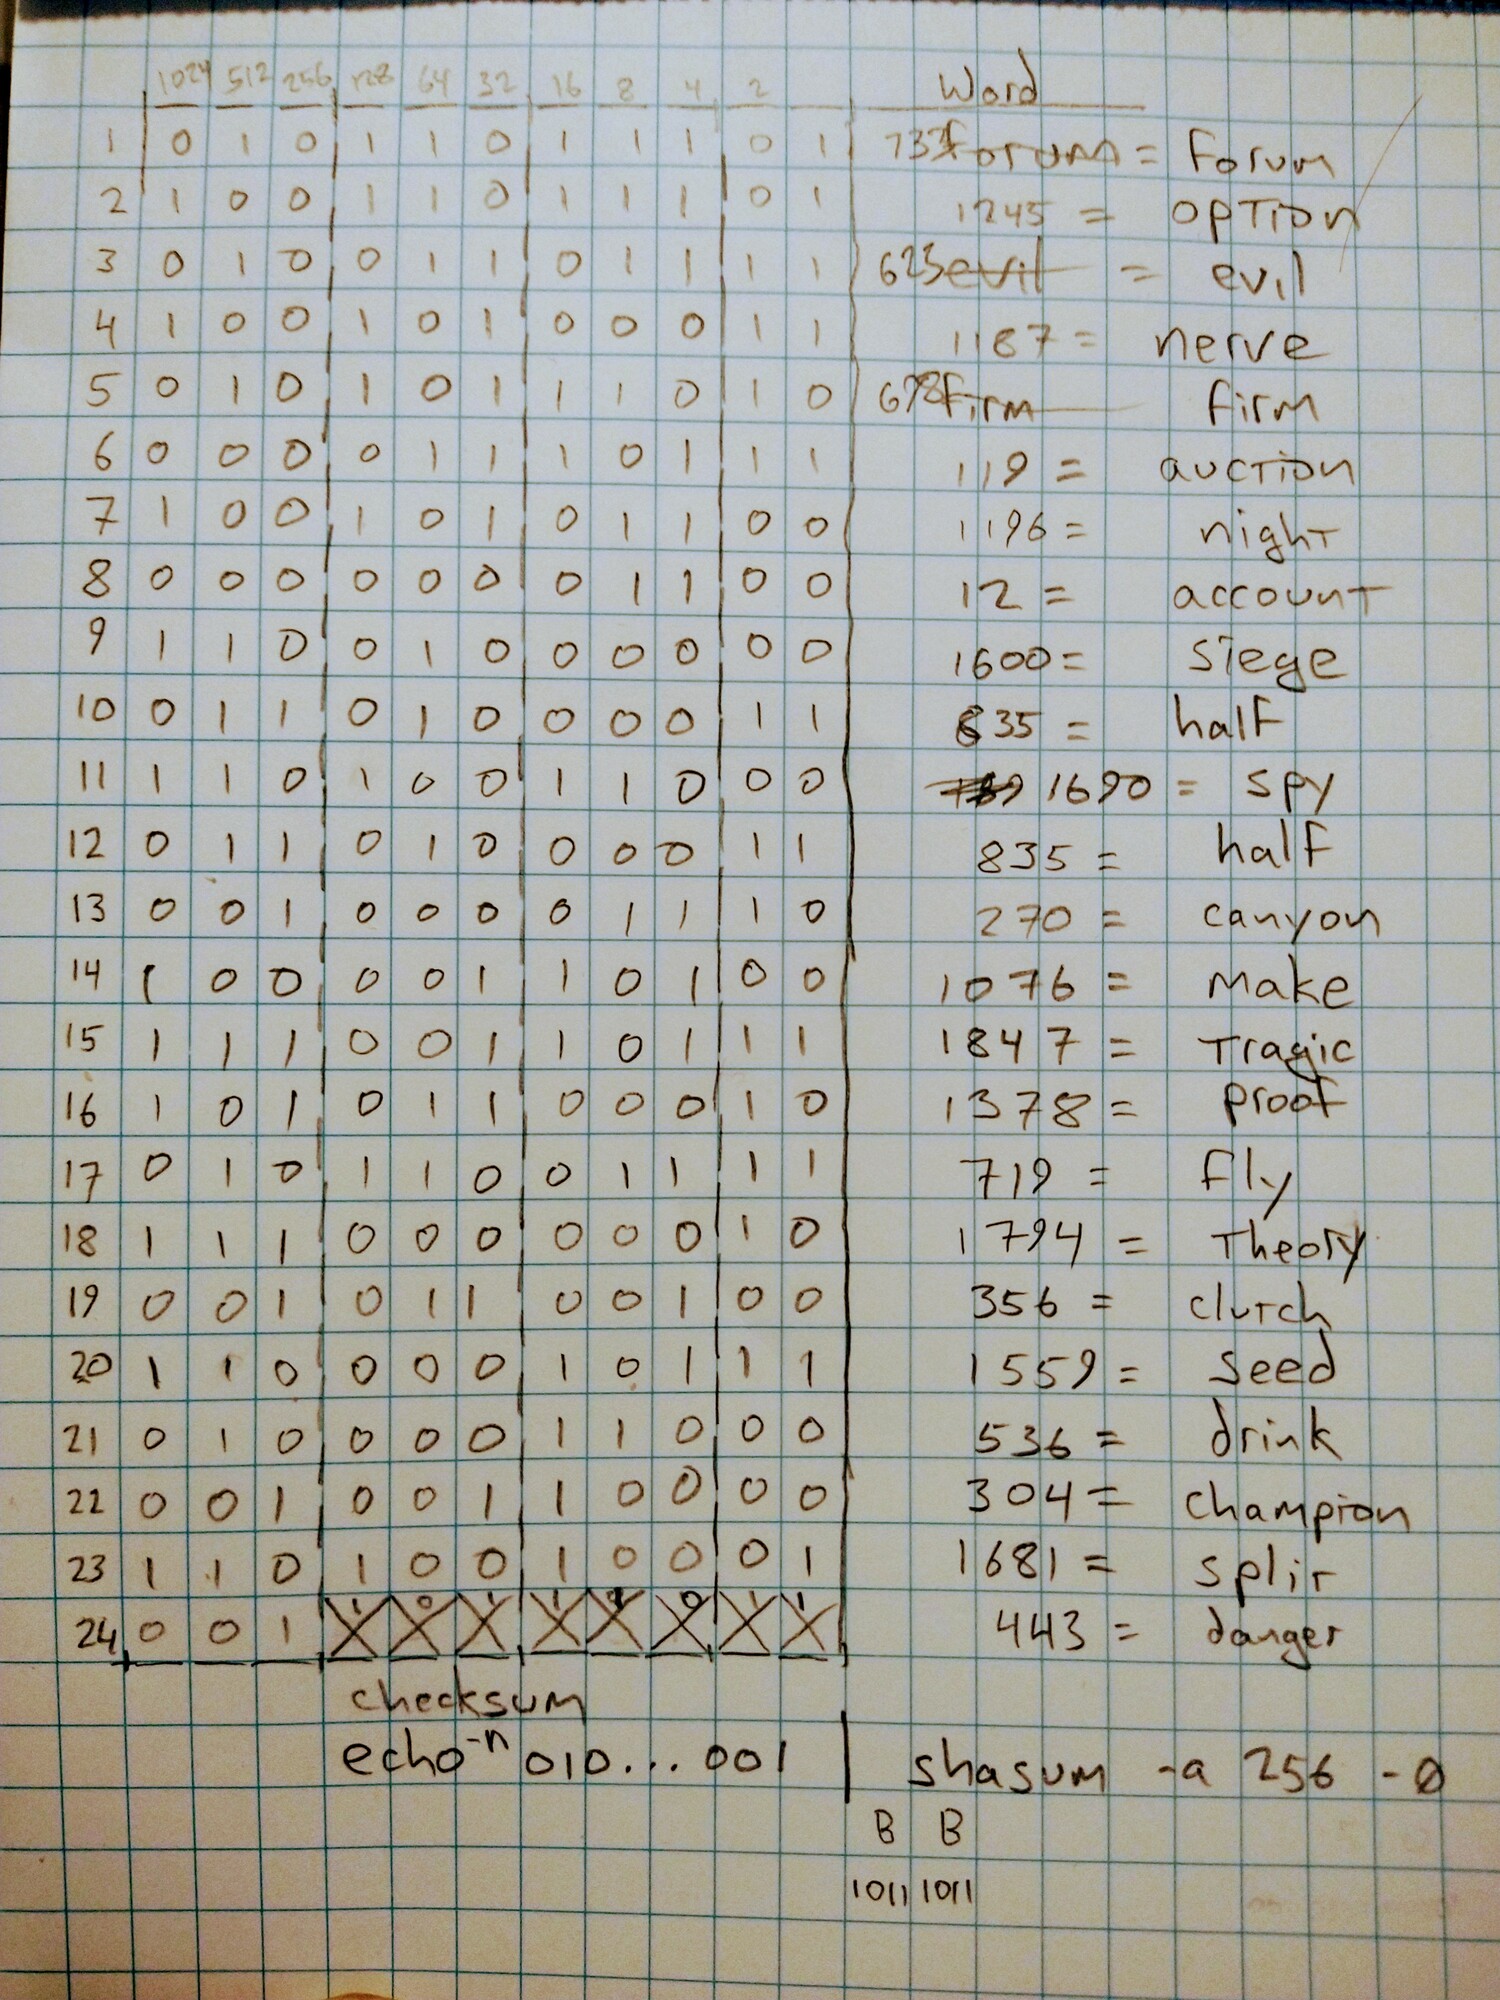 1024 512 256 128 64 32 16 8 4 2 Word
1 0 1 0 1 1 0 1 1 1 0 1 733 forum = forum
2 1 0 0 1 1 0 1 1 1 0 1 1245 = option
3 0 1 0 0 1 1 0 1 1 1 1 623 evil = evil
4 1 0 0 1 0 1 0 0 0 1 1 1187 = nerve
5 0 1 0 1 0 1 1 1 0 1 0 698 firm firm
6 0 0 0 0 1 1 1 0 1 1 1 119 = auction
7 1 0 0 1 0 1 0 1 1 0 0 1196 = night
8 0 0 0 0 0 0 0 1 1 0 0 12 = account
9 1 1 0 0 1 0 0 0 0 0 0 1600 = siege
10 0 1 1 0 1 0 0 0 0 1 1 835 = half
11 1 1 0 1 0 0 1 1 0 0 0 1690 = spy
12 0 1 1 0 1 0 0 0 0 1 1 835 = half
13 0 0 1 0 0 0 0 1 1 1 0 270 = canyon
14 1 0 0 0 0 1 1 0 1 0 0 1076 = make
15 1 1 1 0 0 1 1 0 1 1 1 1847 = tragic
16 1 0 1 0 1 1 0 0 0 1 0 1378 = proof
17 0 1 0 1 1 0 0 1 1 1 1 719 = fly
18 1 1 1 0 0 0 0 0 0 1 0 1794 = theory
19 0 0 1 0 1 1 0 0 1 0 0 356 = clutch
20 1 1 0 0 0 0 1 0 1 1 1 1559 = seed
21 0 1 0 0 0 0 1 1 0 0 0 536 = drink
22 0 0 1 0 0 1 1 0 0 0 0 304 = champion
23 1 1 0 1 0 0 1 0 0 0 1 1681 = split
24 0 0 1 1 0 1 1 1 0 1 1 443 = danger
checksum
echo -n 010...001 | shasum -a 256 -0
B B
1011 1011